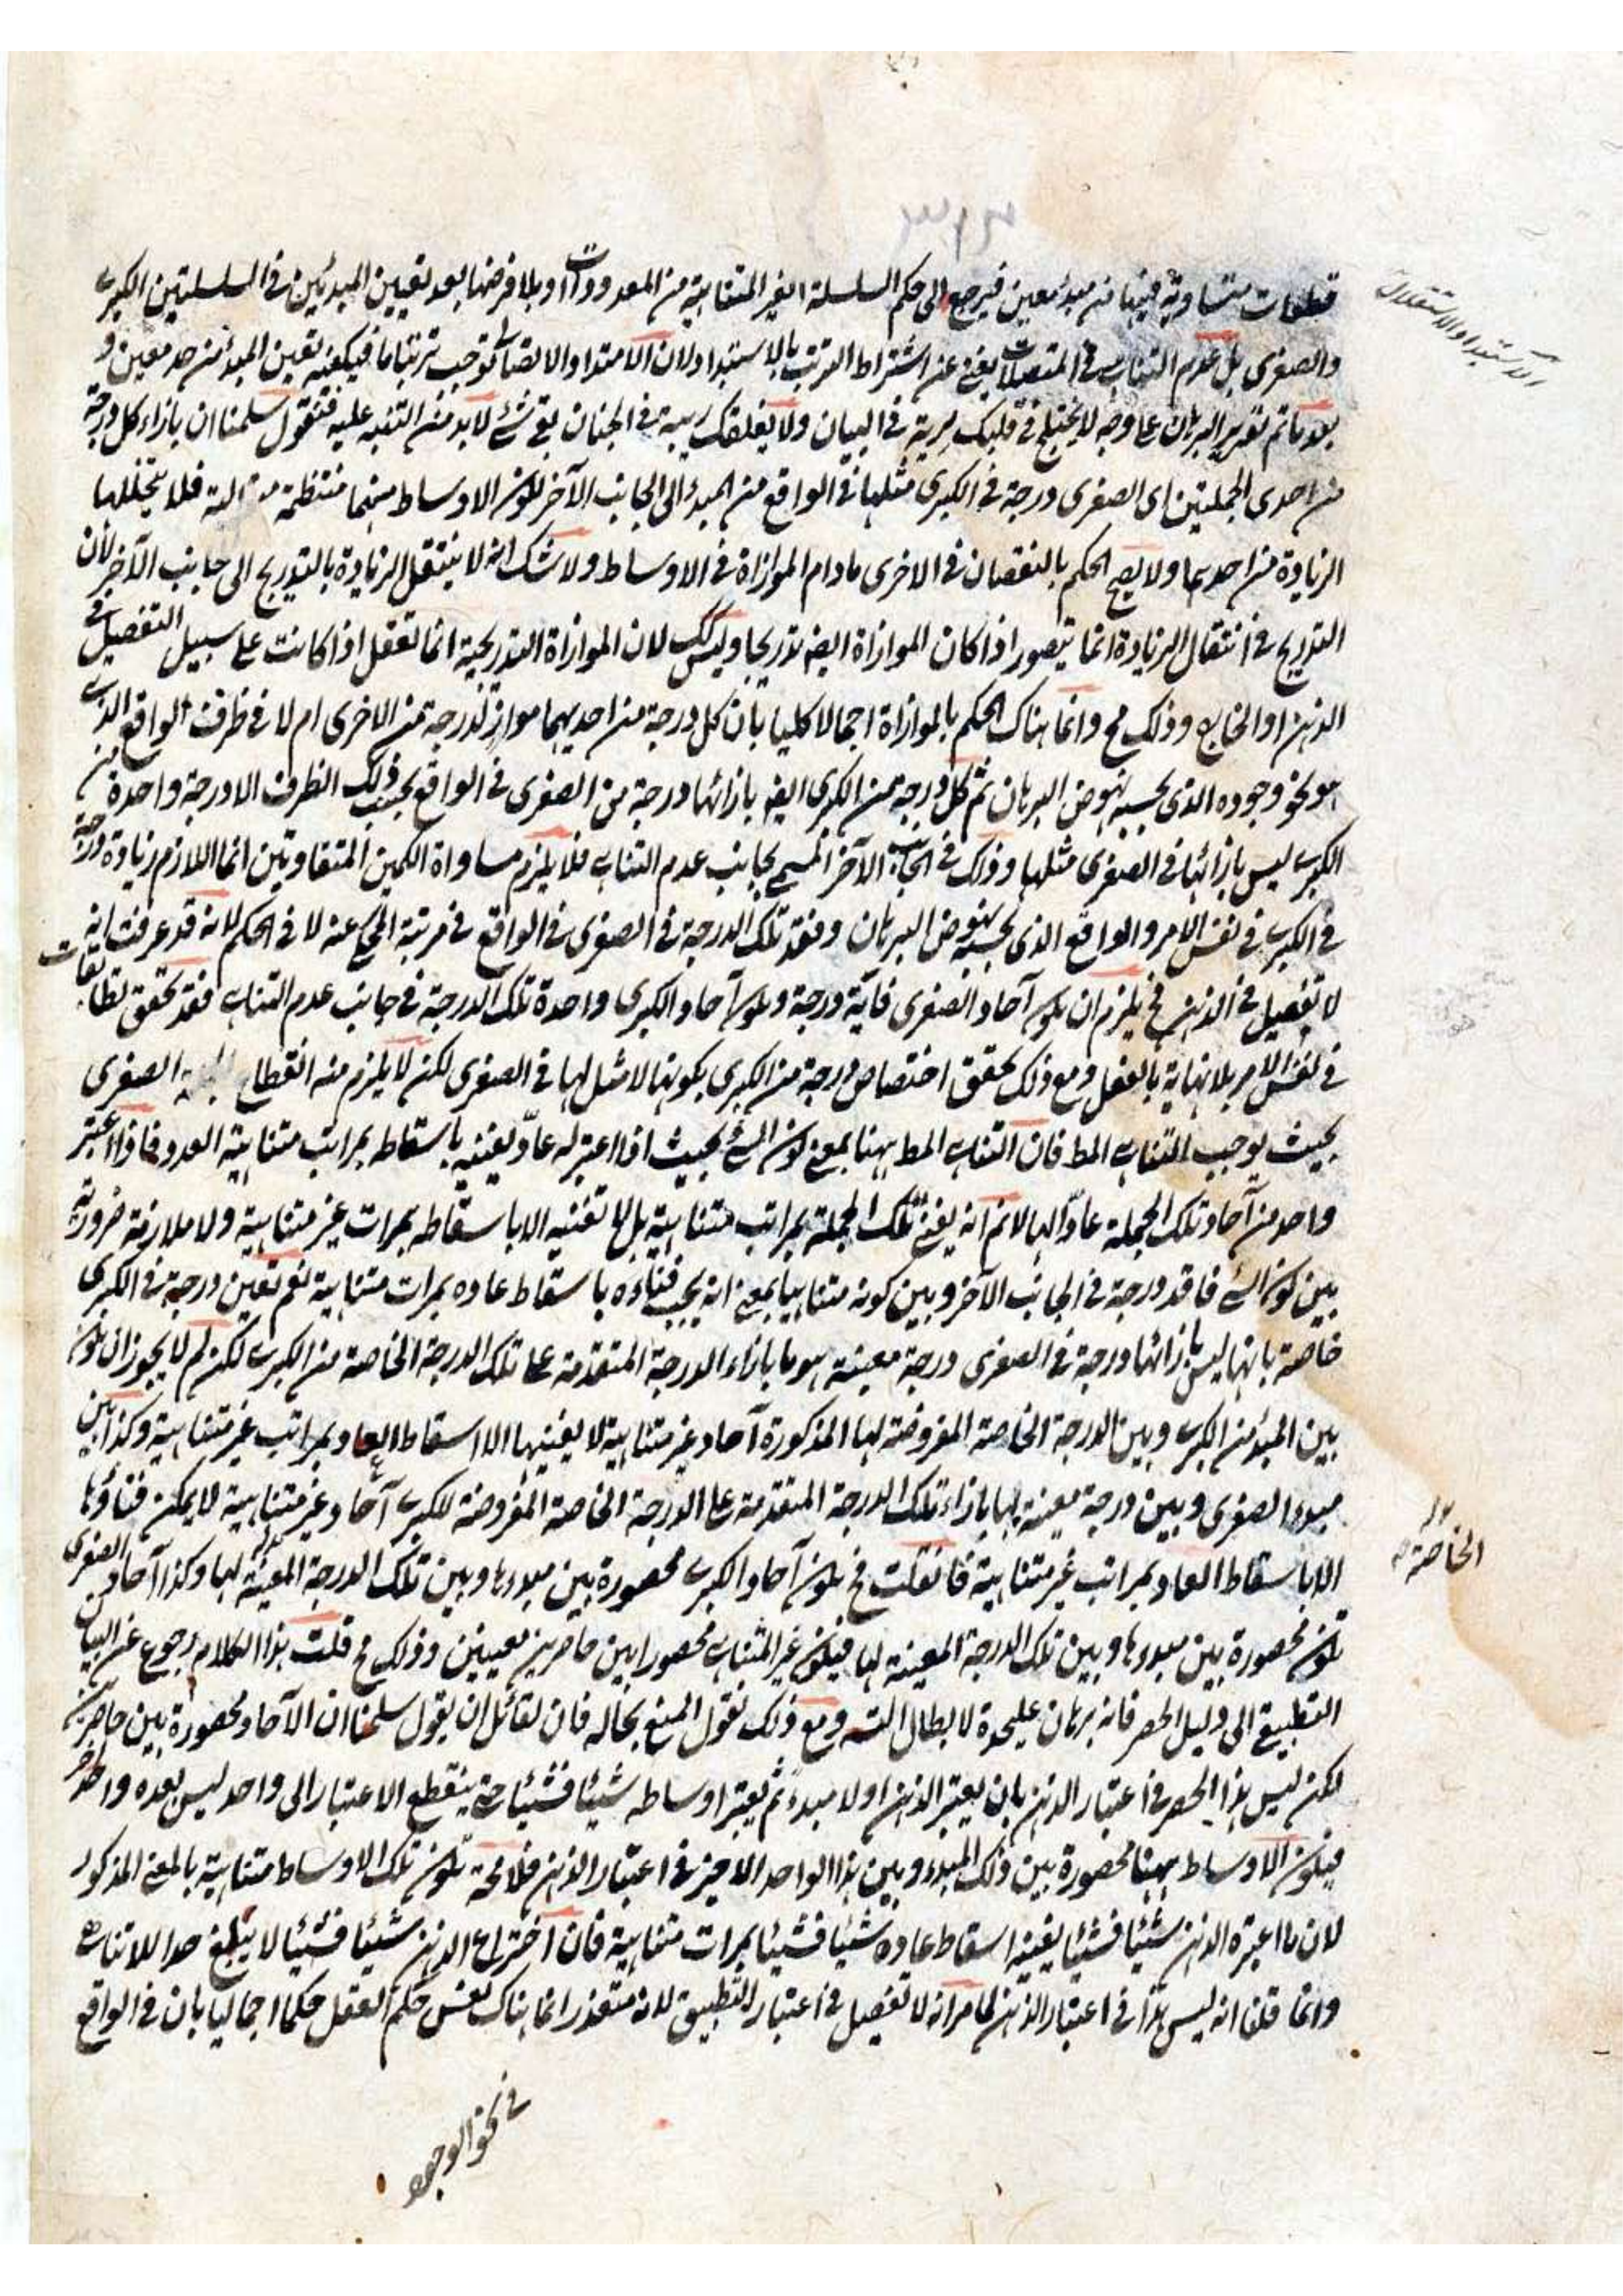 قطعات متساوية فيها من مبدء معين فيرجع الى حكم السلسلة الغير المتناهية من المعدودات او بلا فرضها بعد تعيين المبدئين في السلسلتين الكبرى
والصغرى بل عدم التناهى في المتصلات يغنى عن اشتراط الترتب بالاستبداد لان الامتداد والاتصال يوجب ترتبا ما فيكفيه تعين المبدء من حد معين و
بعد ما تم تقرير البرهان على وجه لا يختلج في قلبك مرية في البيان ولا يغلقك ريبة في الجنان بقى شئ لا بد من التنبه عليه فنقول سلمنا ان بازاء كل درجة
من احدى الجملتين اى الصغرى درجة في الكبرى مثلها في الواقع من المبدء الى الجانب الآخر لكون الاوساط منهما منتظمة فلا يتخللها
الزيادة من احديهما ولا يصح الحكم بالنقصان في الاخرى ما دام الموازاة في الاوساط ولا شك انه لا ينتقل الزيادة بالتدريج الى جانب الآخر لأن
التدريج في انتقال الزيادة انما يتصور اذا كان الموازاة ايضه تدريجا وليس كك لان الموازاة التدريجية انما تعقل اذا كانت على سبيل التفصيل في
الذهن او الخارج وذلك مح وانما هناك الحكم بالموازاة اجمالا كليا بان كل درجة من احديهما مواز لدرجة من الاخرى ام لا في ظرف الواقع الذى
هو نحو وجوده الذى بحسبه نهوض البرهان ثم كل درجة من الكبرى ايضه بازائها درجة من الصغرى في الواقع بحسب ذلك الظرف الا درجة واحدة من
الكبرى ليس بازائها في الصغرى مثلها وذلك في الجانب الآخر المسمى بجانب عدم التناهى فلا يلزم مساواة الكمين المتفاوتين انما اللازم زيادة درجة
في الكبرى في نفس الامر والواقع الذى بحسبه نهوض البرهان وفقد تلك الدرجة في الصغرى في الواقع في مرتبة المحكى عنه لا في الحكم لانه قد عرفت انه
لا تفصيل في الذهن فح يلزم ان يكون آحاد الصغرى فاقدة درجة ويكون آحاد الكبرى واحدة تلك الدرجة في جانب عدم التناهى فقد تحقق تطابقات
في نفس الامر بلا نهاية بالفعل ومع ذلك تحقق اختصاص درجة من الكبرى بكونها لا مثل لها في الصغرى لكن لا يلزم منه انقطاع الصغرى
بحيث يوجب التناهى المط فان التناهى المط ههنا بمعنى كون الشئ بحيث اذا اعتبر له عادّ يفنيه باسقاطه بمراتب متناهية العدد فاذا اعتبر
واحد من آحاد تلك الجملة عادّا لها لا نم انه يفنى تلك الجملة بمراتب متناهية بل لا تفنيه الا باسقاطه بمرات غير متناهية ولا ملازمة ضرورية
بين كون الشئ فاقد درجة في الجانب الآخر وبين كونه متناهيا بمعنى انه يجب فناءه باسقاط عاده بمرات متناهية نعم تعين درجة في الكبرى
خاصة بانها ليس بازائها درجة في الصغرى درجة معينة هو ما بازاء الدرجة المتقدمة على تلك الدرجة الخاصة من الكبرى لكن لم لا يجوز ان يكون
بين المبدء من الكبرى وبين الدرجة الخاصة المفروضة لها المذكورة آحاد غير متناهية لا يفنيها الا اسقاط العاد بمراتب غير متناهية وكذا بين
مبدء الصغرى وبين درجة معينة لها بازاء تلك الدرجة المتقدمة على الدرجة الخاصة المفروضة للكبرى آحاد غير متناهية لا يمكن فناؤها
الا باسقاط العاد بمراتب غير متناهية فان قلت فح يكون آحاد الكبرى محصورة بين مبدءها وبين تلك الدرجة المعينة لها وكذا آحاد الصغرى
تكون محصورة بين مبدءها وبين تلك الدرجة المعينة لها فيكون غير المتناهى محصورا بين حاصرين معينين وذلك مح قلت هذا الكلام رجوع عن البيان
التطبيقى الى دليل الحصر فانه برهان عليحدة لابطال التسه ومع ذلك نقول المنع بحاله فان لقائل ان يقول سلمنا ان الآحاد محصورة بين حاصرين
لكن ليس هذا الحصر في اعتبار الذهن بان يعتبر الذهن اولا مبدء ثم يعتبر اوساطه شيئا فشيئا حتى ينقطع الاعتبار الى واحد ليس بعده واحد آخر
فيكون الاوساط ههنا محصورة بين ذلك المبدء وبين هذا الواحد الاخير في اعتبار الذهن فلا محة تكون تلك الاوساط متناهية بالمعنى المذكور
لان ما اعتبره الذهن شيئا فشيئا يفنيه اسقاط عاده شيئا فشيئا بمرات متناهية فان اختراع الذهن شيئا فشيئا لا يبلغ حد اللاتناهى
وانما قلنا انه ليس هذا في اعتبار الذهن لما مر انه لا تفصيل في اعتبار التطبيق لانه متعذر انما هناك نفس حكم العقل حكما اجماليا بان في الواقع
في نحو الوجود
الاستبداد والاستقلال
الخاصة